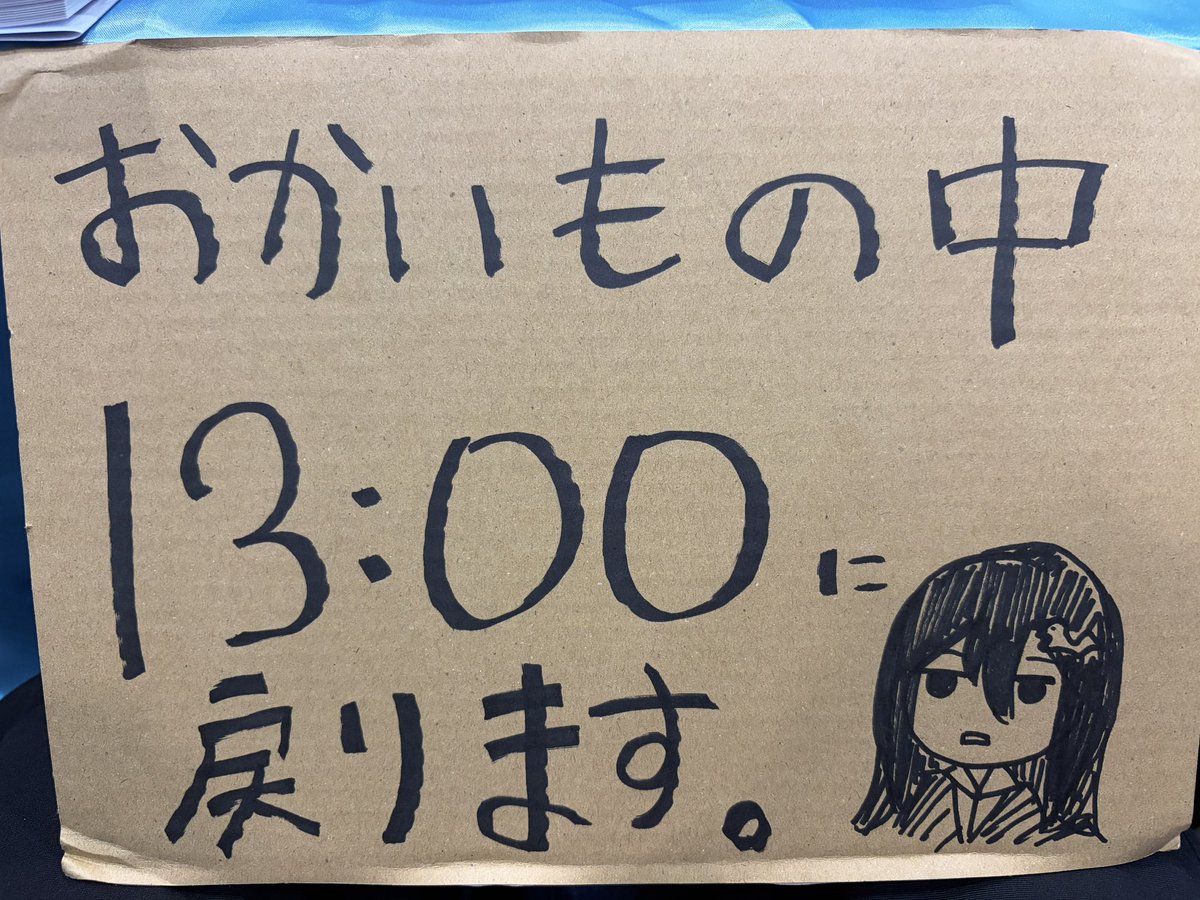 おかいもの中
13:00に
戻ります。